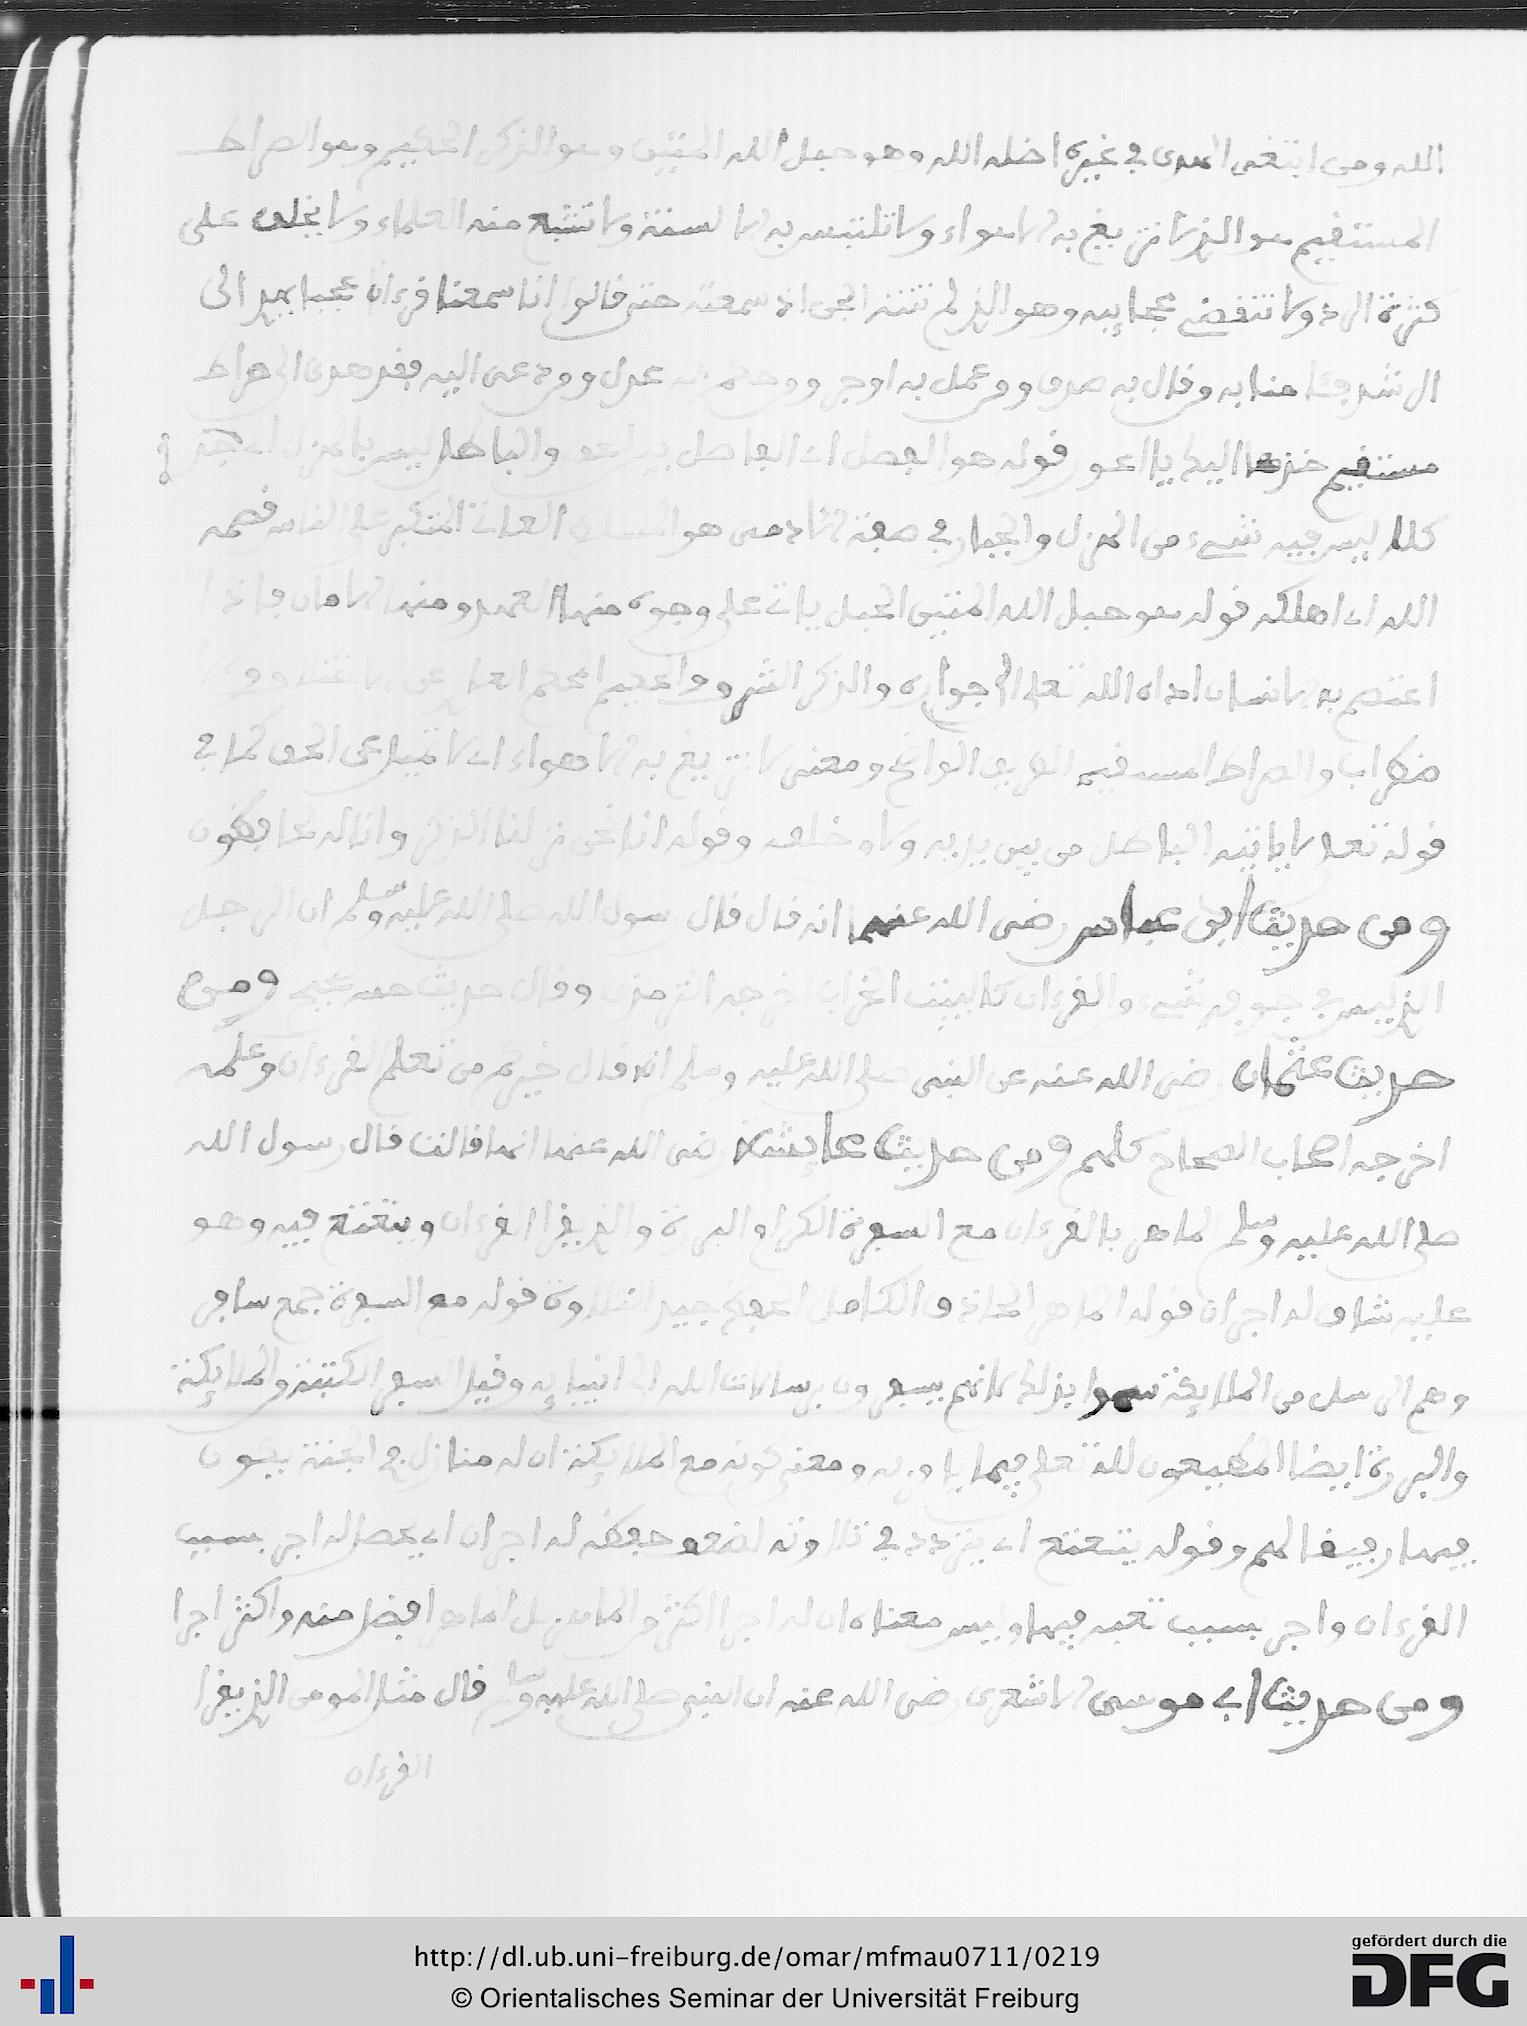 الله ومن ابتغى الهدى في غيره اضله الله وهو حبل الله المتين وهو الذكر الحكيم وهو الصراط
المستقيم هو الذي لا تزيغ به الاهواء ولا تلتبس به الا لسنة ولا تشبع منه العلماء ولا يخلق على
كثرة الرد ولا تنقضي عجايبه وهو الذي لم تنته الجن اذ سمعته حتى قالوا انا سمعنا قرءانا عجبا يهدي الى
الرشد فئامنا به من قال به صدق ومن عمل به اوجر ومن حكم به عدل ومن دعى اليه فقد هدى الى صراط
مستقيم خذها اليك يا اعور قوله هو الفصل اي الفاصل بين الحق والباطل ليس بالهزل اي جد
كله ليس فيه شيء من الهزل والجبار في صفة الادمي هو المسلط العاتي المتكبر على الناس قصمه
الله اي اهلكه قوله هو حبل الله المتين الحبل ياتي على وجوه منها العهد ومنها الامان فاذا
اعتصم به الانسان اداه الله تعلى الى جواره والذكر الشرف والحكيم المحكم العاري عن الاختلاف والا
ضطراب والصراط المستقيم الطريق الواضح ومعنى لا تزيغ به الاهواء اي لا تميل عن الحق كما في
قوله تعلى لا ياتيه الباطل من بين يديه ولا من خلفه وقوله انا نحن نزلنا الذكر وانا له لحافظون
ومن حديث ابن عباس رضى الله عنهما انه قال قال رسول الله صلى الله عليه وسلم ان الرجل
الذي ليس في جوفه شيء من القرءان كالبيت الخراب اخرجه الترمذي وقال حديث حسن صحيح ومن
حديث عثمان رضى الله عنه عن النبي صلى الله عليه وسلم انه قال خيركم من تعلم القرءان وعلمه
اخرجه اصحاب الصحاح كلهم ومن حديث عايشة رضى الله عنها انها قالت قال رسول الله
صلى الله عليه وسلم الماهر بالقرءان مع السفرة الكرام البررة والذي يقرا القرءان ويتعتع فيه وهو
عليه شاق له اجران قوله الماهر الحاذق الكامل الحفظ جيد التلاوة قوله مع السفرة جمع سافر
وهم الرسل من الملايكة سموا بذلك لانهم يسفرون برسالات الله الى انبيايه وقيل السفر الكتبة والملايكة
والبررة ايضا المطيعون لله تعلى فيما يامر به ومعنى كونه مع الملايكة ان له منازل في الجنة يكون
فيها رفيقا لهم وقوله يتعتع اي يتردد في تلاوته لضعف حفظه له اجران اي يحصل له اجر بسبب
القرءان واجر بسبب تعبه فيها وليس معناه ان له اجرا اكثر من الماهر بل الماهر افضل منه واكثر اجرا
ومن حديث ابي موسى الاشعري رضى الله عنه ان النبي صلى الله عليه وسلم قال مثل المومن الذي يقرا
القرءان
http://dl.ub.uni-freiburg.de/omar/mfmau0711/0219
© Orientalisches Seminar der Universität Freiburg
gefördert durch die
DFG